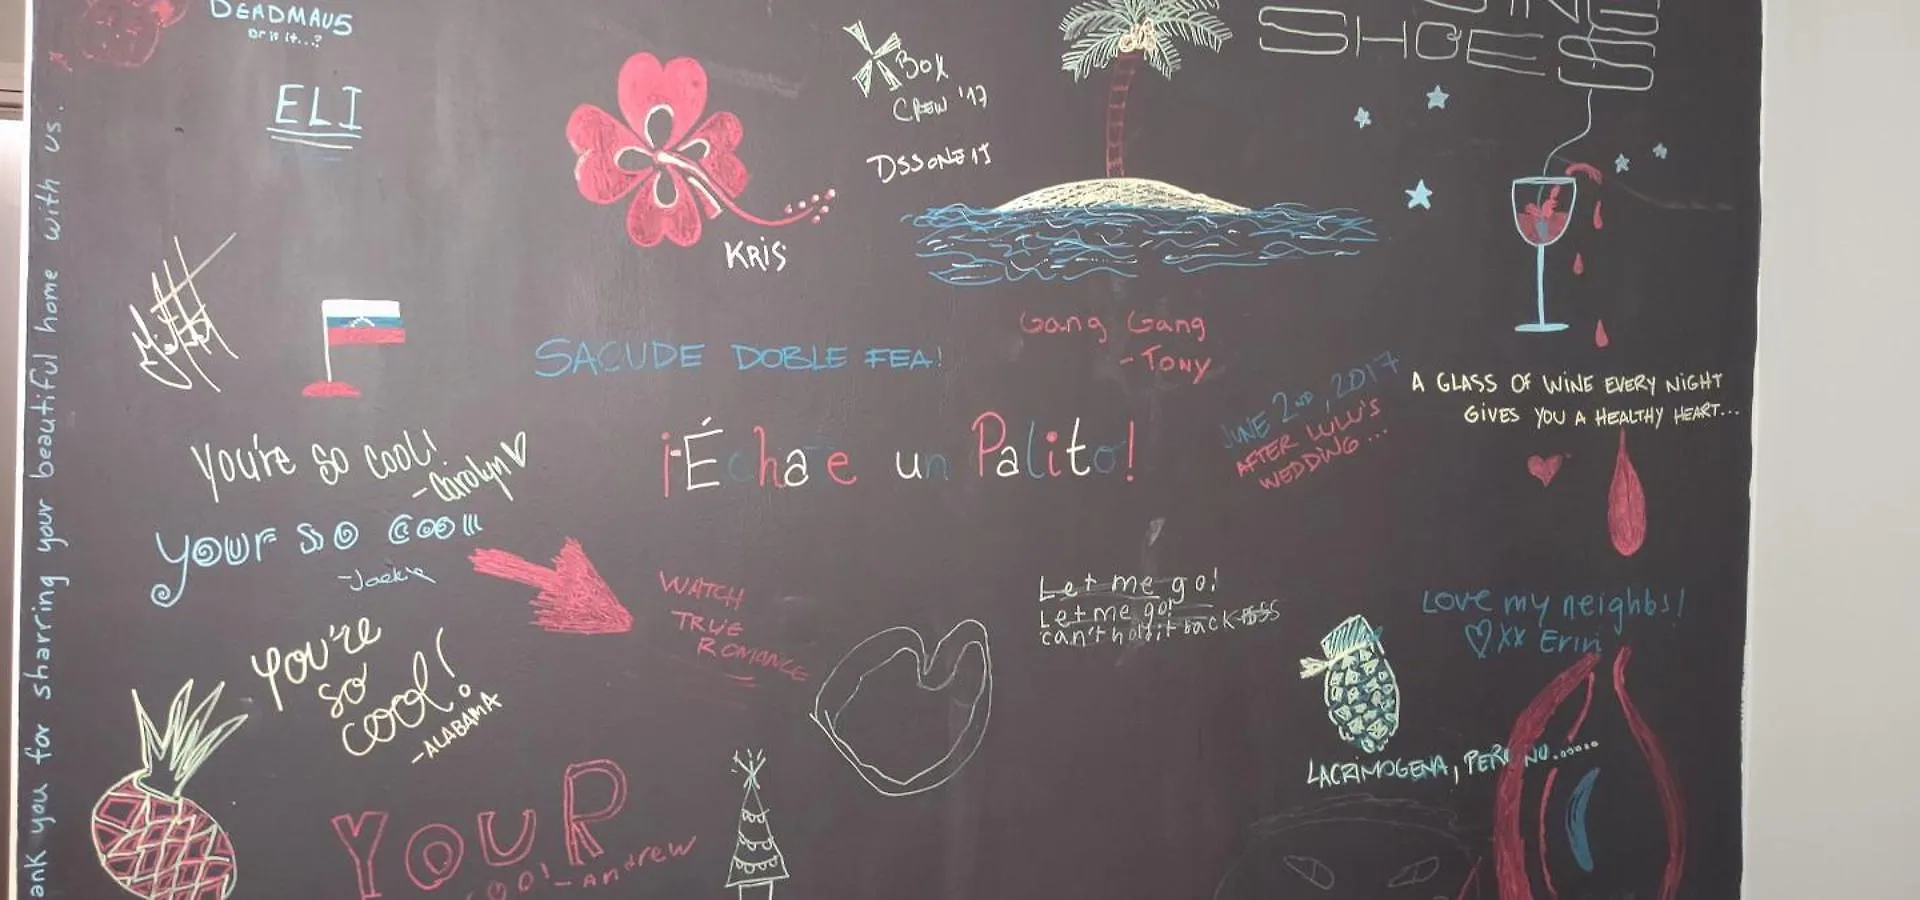 DEADMAU5
or is it...?
ELI
KRIS
BOX
CREW '17
DSSONE 1J
SHOES
Gang Gang
- TONY
SACUDE DOBLE FEA!
¡Échate un Palito!
JUNE 2ND, 2017
AFTER LULU'S
WEDDING...
A GLASS OF WINE EVERY NIGHT
GIVES YOU A HEALTHY HEART...
You're so cool!
- Carolyn
your so cool
- Jackie
You're
so
cool!
- ALABAMA
WATCH
TRUE
ROMANCE
Let me go!
Let me go!
can't hold it back
Love my neighbs!
♡xx Erin
LACRIMOGENA, PERO NO......
YOUR
- Andrew
ank you for sharring your beautiful home with us.